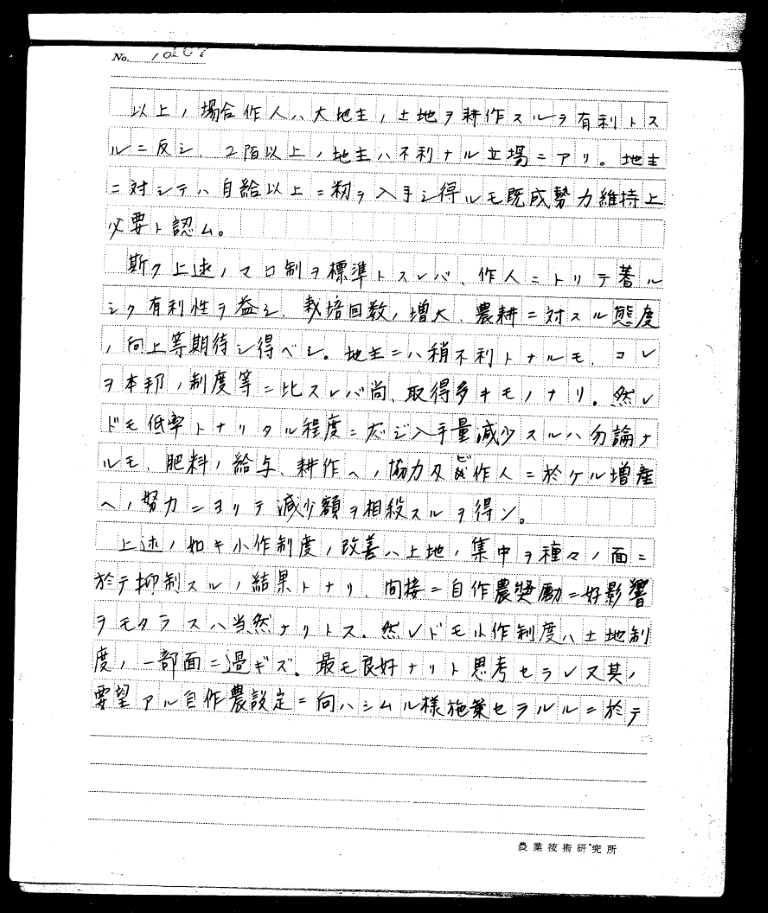 No. 10
以上ノ場合作人ハ大地主ノ土地ヲ耕作スルヲ有利トス
ルニ反シ、2陌以上ノ地主ハ不利ナル立場ニアリ。地主
ニ対シテハ自給以上ニ籾ヲ入手シ得ルモ既成勢力維持上
必要ト認ム。
斯ク上述ノマロ制ヲ標準トスレバ、作人ニトリテ著ル
シク有利性ヲ益シ、栽培回数ノ増大、農耕ニ対スル態度
ノ向上等期待シ得ベシ。地主ニハ稍不利トナルモ、コレ
ヲ本邦ノ制度等ニ比スレバ尚、取得多キモノナリ。然レ
ドモ低率トナリタル程度ニ応ジ入手量減少スルハ勿論ナ
ルモ、肥料ノ給与、耕作ヘノ協力及ビ作人ニ於ケル増産
ヘノ努力ニヨリテ減少額ヲ相殺スルヲ得ン。
上述ノ如キ小作制度ノ改善ハ土地ノ集中ヲ種々ノ面ニ
於テ抑制スルノ結果トナリ、間接ニ自作農奨励ニ好影響
ヲモタラスハ当然ナリトス。然レドモ小作制度ハ土地制
度ノ一部面ニ過ギズ。最モ良好ナリト思考セラレ又其ノ
要望アル自作農設定ニ向ハシムル様施策セラルルニ於テ
農業技術研究所